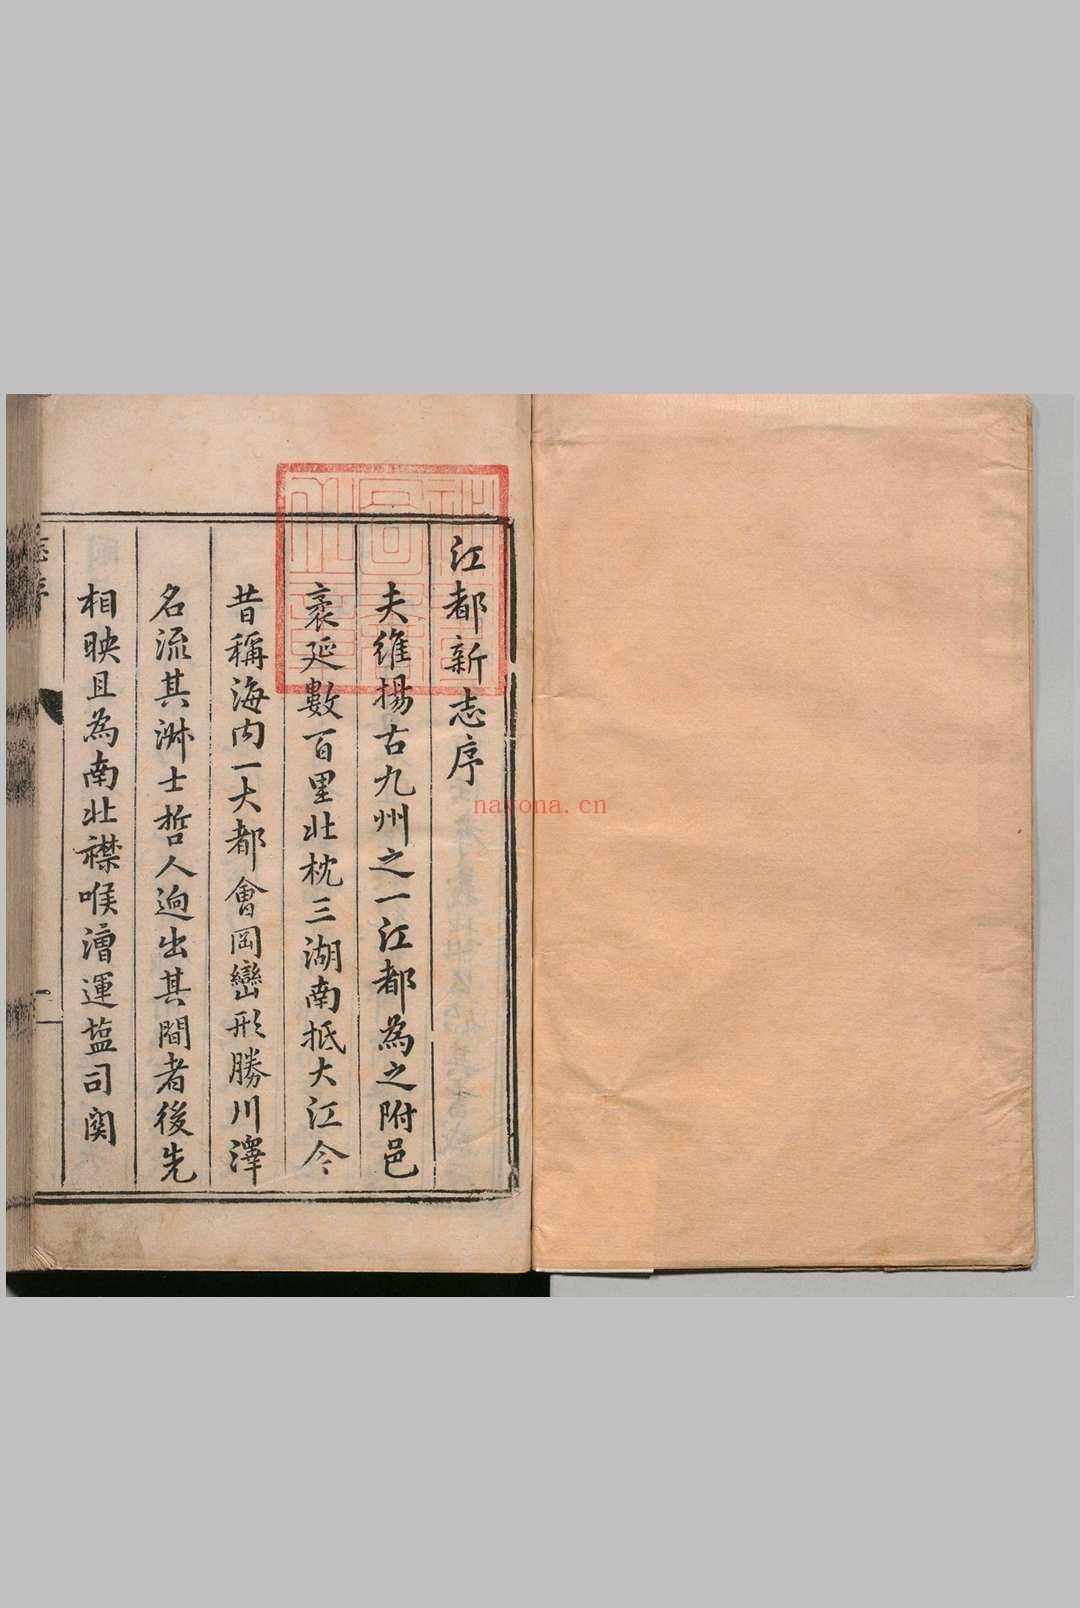 江都新志序
夫維揚古九州之一江都為之附邑
袤延數百里北枕三湖南抵大江今
昔稱海内一大都會岡巒形勝川澤
名流其淋士哲人迥出其間者後先
相映且為南北襟喉漕運塩司関
志序
一
navona.cn